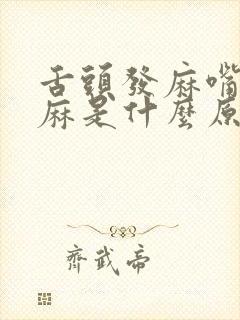 舌頭發麻嘴
麻是什麼原
齊武帝